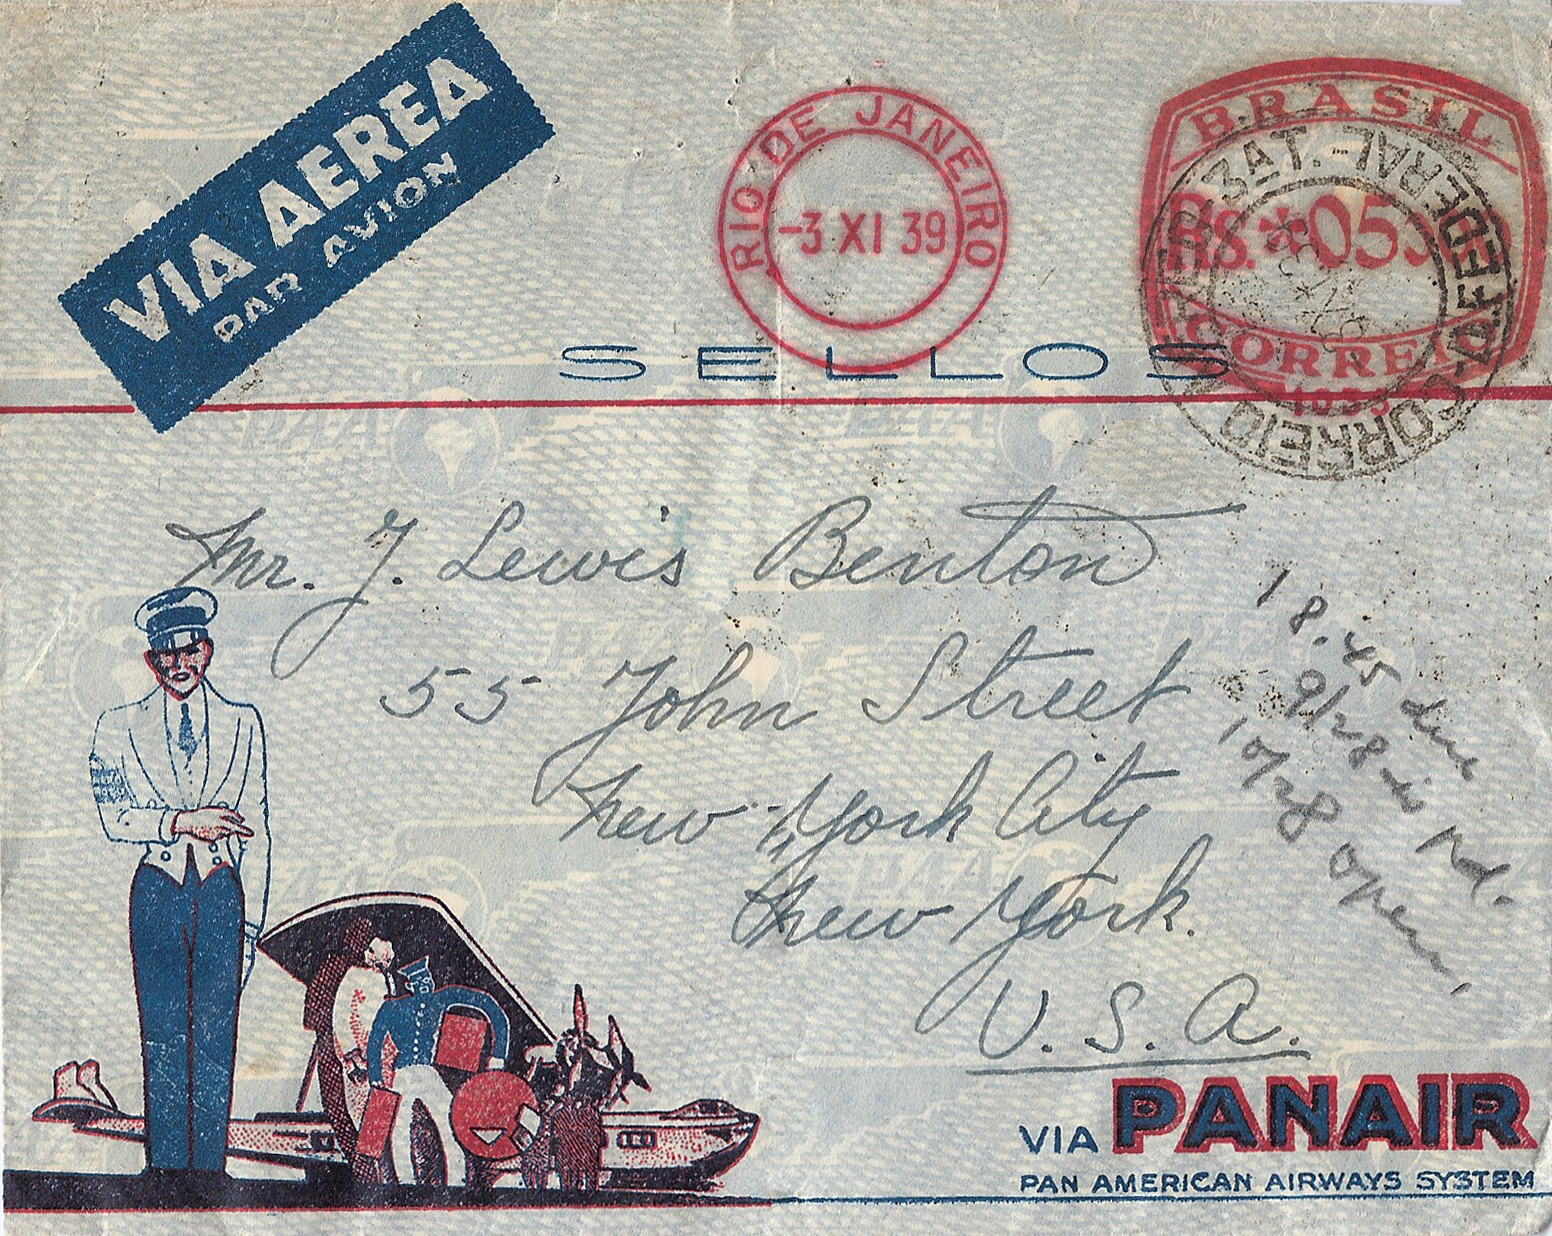 VIA AEREA
PAR AVION
RIO DE JANEIRO
-3 XI 39
BRASIL
RS.*05
CORREIO
CORREIO FEDERAL
SELLOS
PAA
PAA
Mr. J. Lewis Benton
55 John Street
New York City
New York.
U. S. A.
8.45
9/28
10/28 open
VIA PANAIR
PAN AMERICAN AIRWAYS SYSTEM